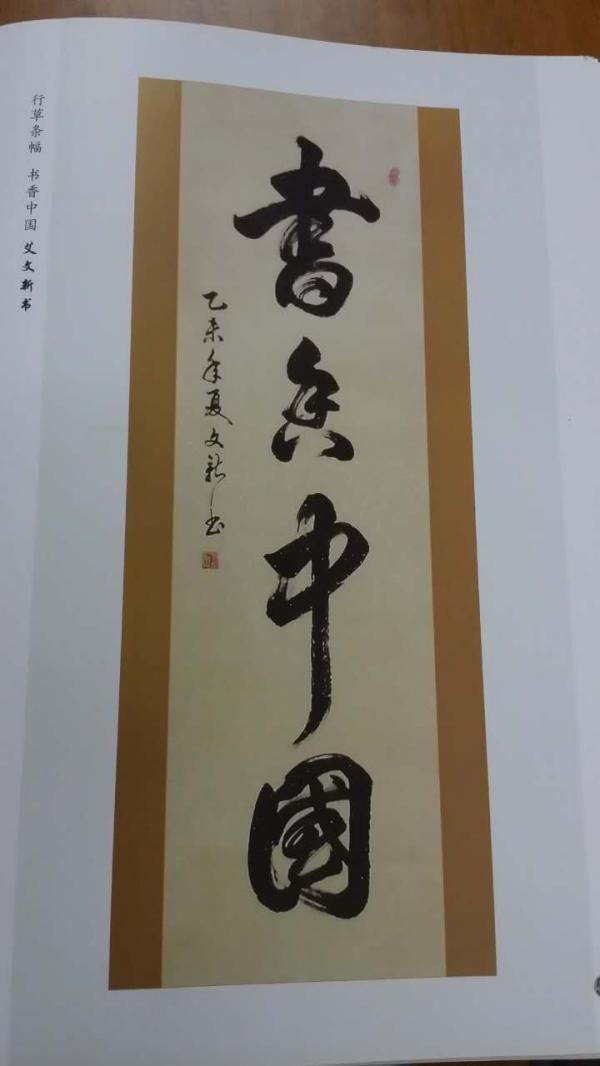 行草条幅 书香中国 艾文新书
書香中国
乙未年夏文新书